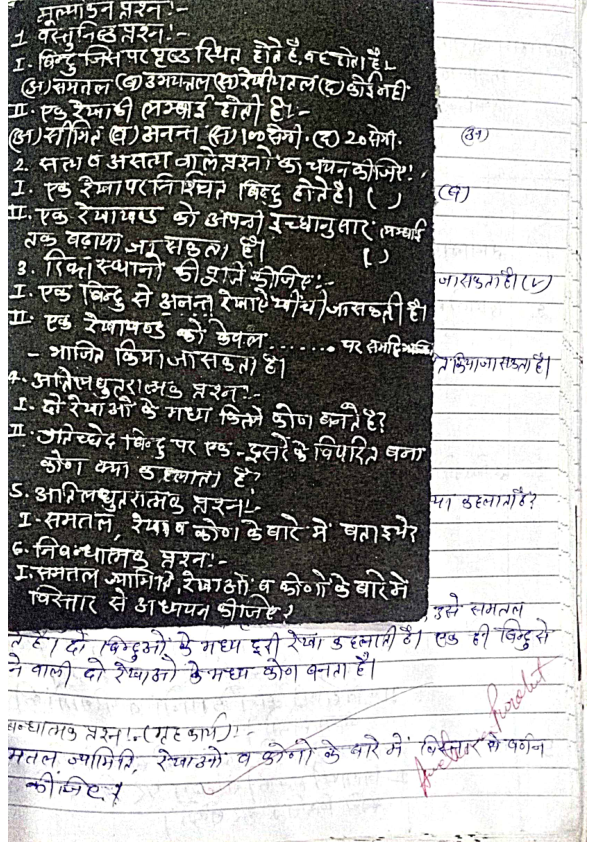 मूल्यांकन प्रश्न :-
1. वस्तुनिष्ठ प्रश्न :-
I. बिन्दु जिस पर पृष्ठ स्थित होते है, वह होता है।
(अ) समतल (ब) उभयतल (स) रेखीगतल (द) कोई नही
II. एक रेखा की लम्बाई होती है :-
(अ) सीमित (ब) अनन्त (स) 100 सेमी. (द) 20 सेमी. (अ)
2. सत्य व असत्य वाले प्रश्नो का चयन कीजिए :-
I. एक रेखा पर निश्चित बिन्दु होते है। ( ) (ब)
II. एक रेखाखण्ड को अपनी इच्छानुसार लम्बाई
तक बढ़ाया जा सकता है। ( )
3. रिक्त स्थानो की पूर्ति कीजिए :- जा सकता है। (✓)
I. एक बिन्दु से अनन्त रेखाएं खींची जा सकती है।
II. एक रेखाखण्ड को केवल ........ पर समद्वि भाजि
- भाजित किया जा सकता है। त किया जा सकता है।
4. अतिलघुतरात्मक प्रश्न :-
I. दो रेखाओं के मध्य कितने कोण बनते है?
II. प्रतिच्छेद बिन्दु पर एक-दूसरे के विपरित बना
कोण क्या कहलाता है?
5. अतिलघुतरात्मक प्रश्न :- या कहलाता है?
I. समतल, रेखा व कोण के बारे में बताइये?
6. निबन्धात्मक प्रश्न :-
I. समतल ज्यामिति, रेखाओं व कोणों के बारे में
विस्तार से अध्ययन कीजिए?
उसे समतल
ते है। दो बिन्दुओं के मध्य दूरी रेखा कहलाती है। एक ही बिन्दु से
ने वाली दो रेखाओं के मध्य कोण बनता है।
बन्धात्मक प्रश्न :- (गृह कार्य) :-
मतल ज्यामिति, रेखाओं व कोणों के बारे में विस्तार से वर्णन
कीजिए?
Purohit